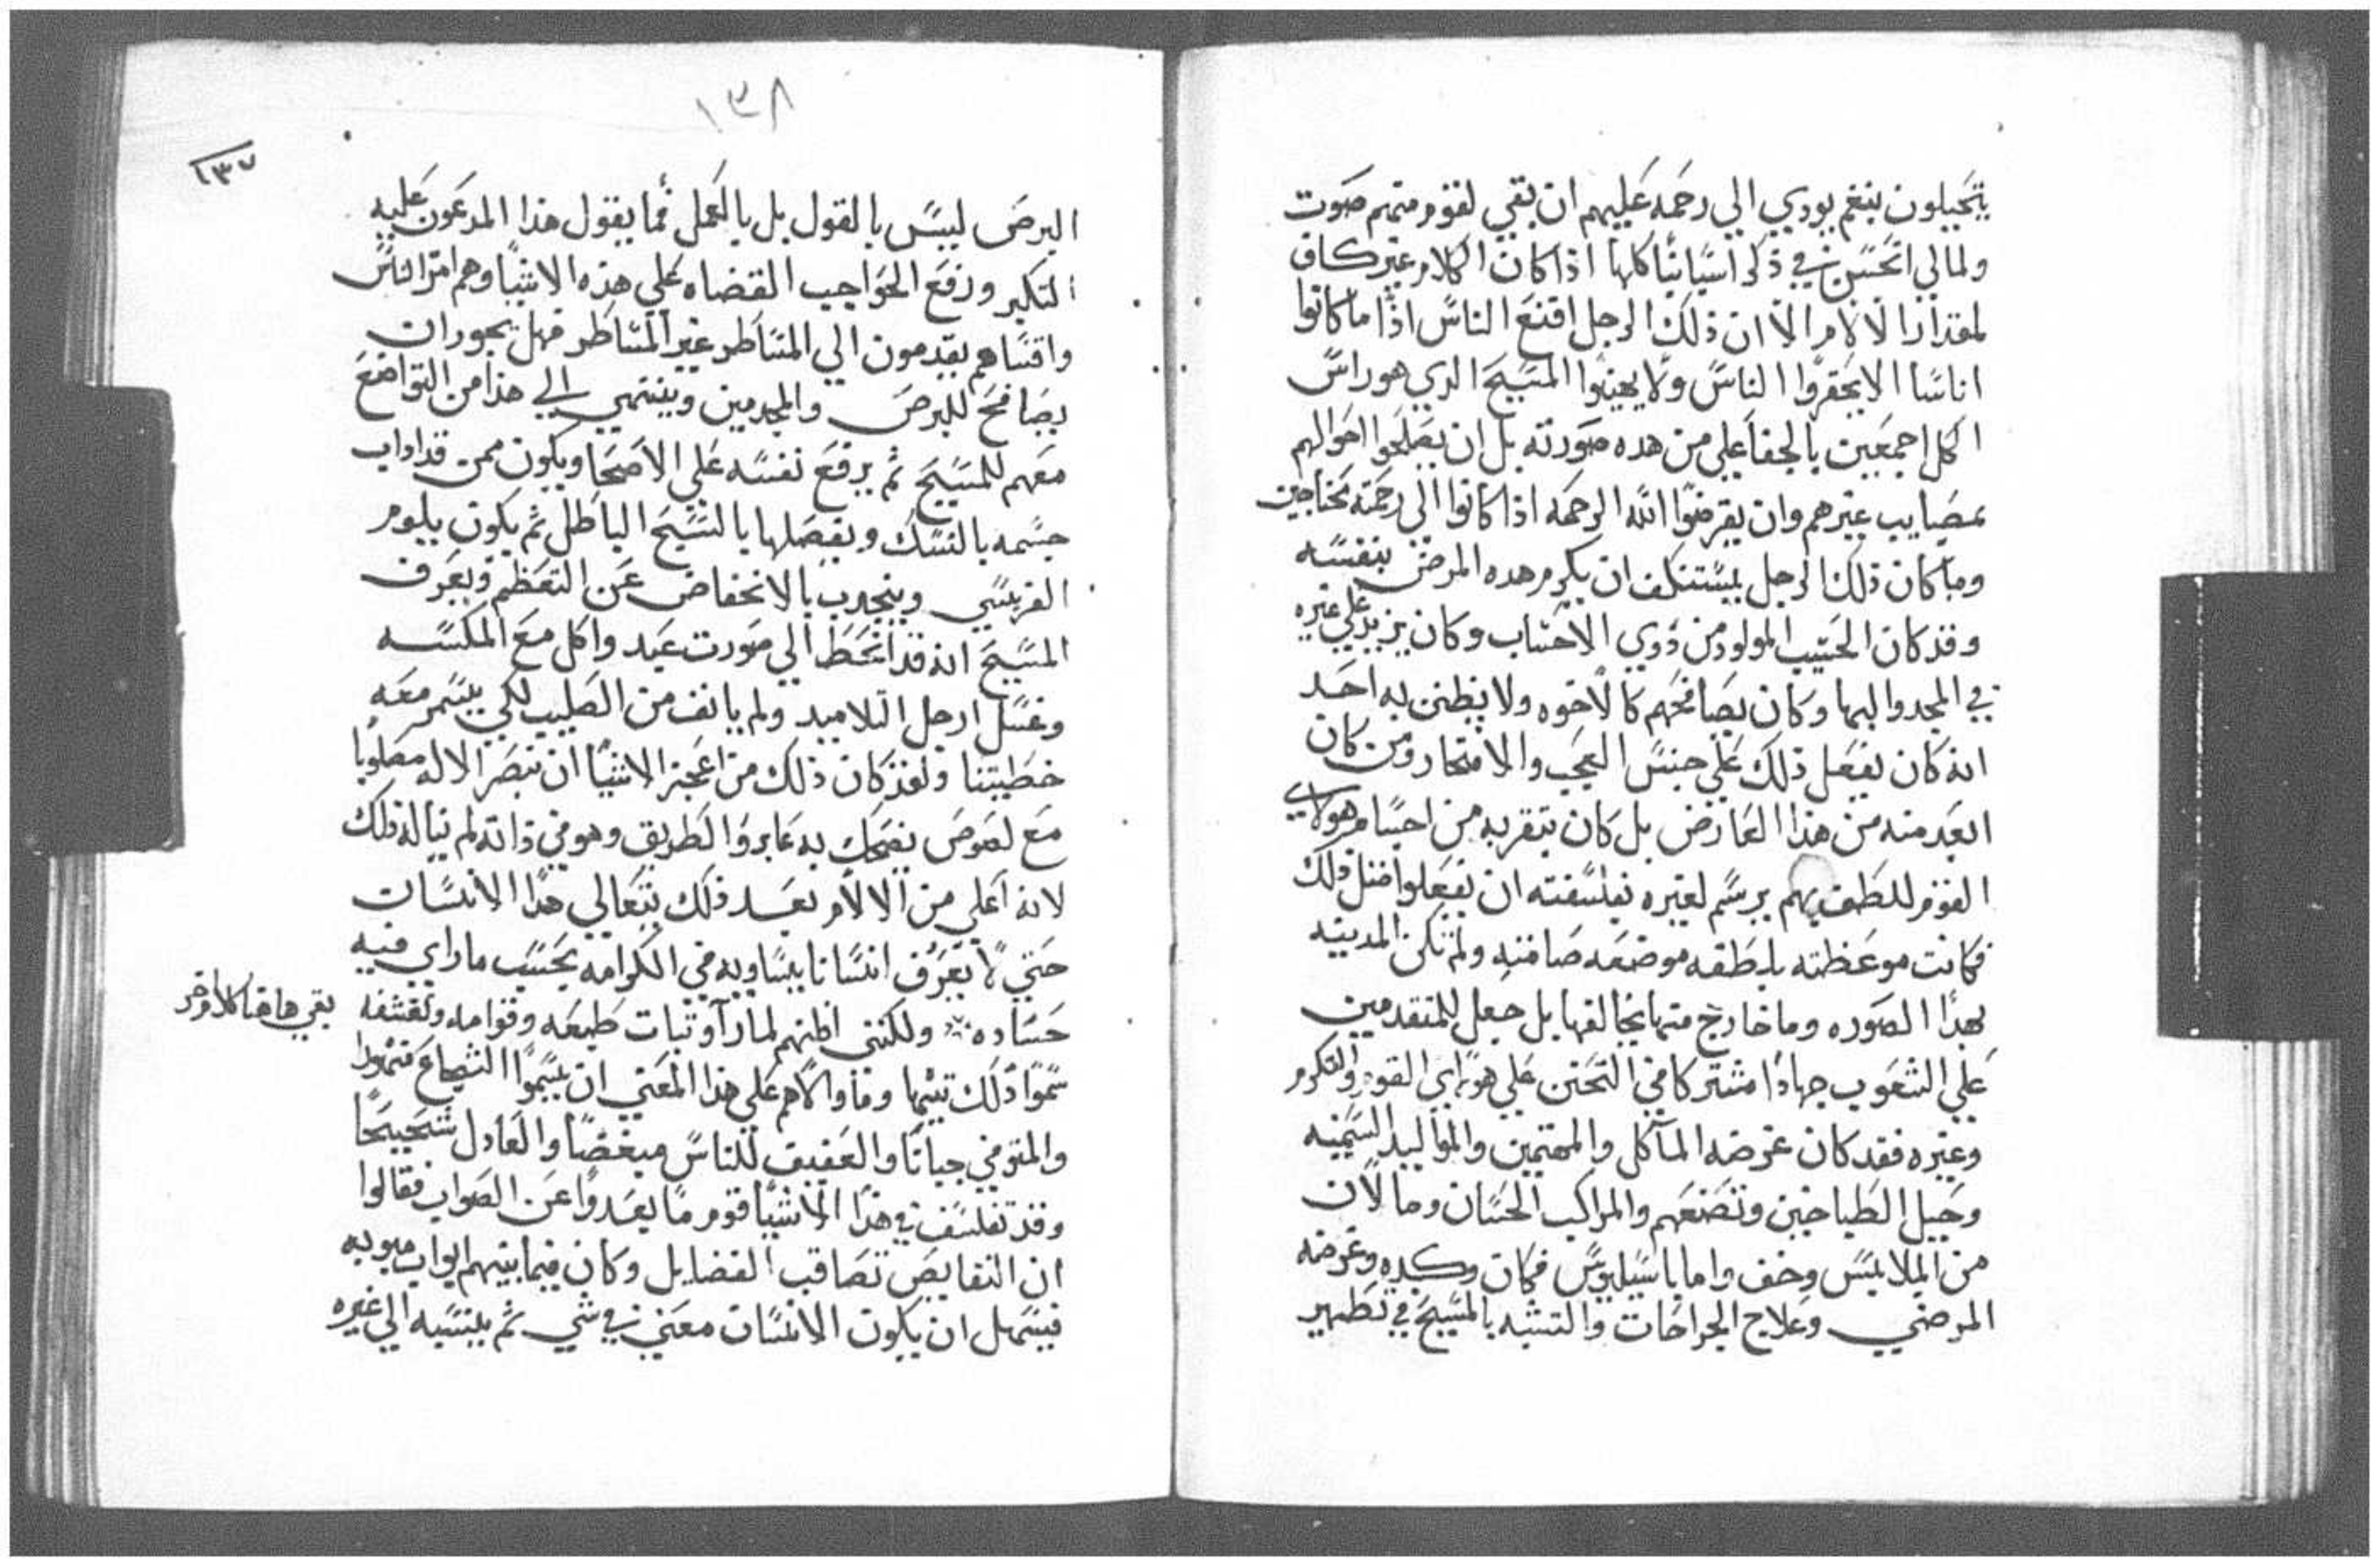 يتحيلون بنغم يودي الي رحمه عليهم ان بقي لقوم منهم صوت
ولمالي اتحسن في ذكر اسيانيا كلها اذا كان الكلام غير كاف
لمقدار الالام الا ان ذلك الرجل اقنع الناس اذا ما كانوا
اناسا الا يحقروا الناس ولا يهينوا المسيح الدي هو راس
الكل اجمعين بالجفا علي من هده صورته بل ان يصلحوا احوالهم
بمصايب غيرهم وان يقرضوا الله الرحمه اذا كانوا الي رحمته محتاجين
وما كان ذلك الرجل يستنكف ان يكرم هده المرض بنفسه
وقد كان الحسيب المولود من ذوي الاحساب وكان يزيد علي غيره
في المجد والبها وكان يصافحهم كالاخوه ولا يظنن به احد
انه كان يفعل ذلك علي جنس العجب والافتخار ومن كان
ابعد منه من هذا العارض بل كان يتقربه من اجسام هولاي
القوم للطف بهم يرسم لغيره بفلسفته ان يفعلوا مثل ذلك
فكانت موعظته باطقه موضعه صامته ولم تكن المدينه
بهذا الصوره وما خارج منها يخالفها بل جعل للمتقدمين
علي الشعوب جهادا مشتركا في التحنن علي هولاي القوم والتكرم
وغيره فقد كان غرضه المآكل والمهتمين والمواليد السمينه
وحيل الطباخين وتصنعهم والمراكب الحسان وما لان
من الملابس وخف واما باسيليوس فكان وكده وغرضه
المرضي وعلاج الجراحات والتشبه بالمسيح في تطهير
١٣٨
١٣٧
البرص ليس بالقول بل بالعمل فما يقول هذا المدعون عليه
التكبر ورفع الحواجب القضاه علي هذه الاشيا وهم امر الناس
واقساهم يقدمون الي المساطر غير المساطر فهل يجوز ان
يصافح للبرص والمجدمين وينتهي الي هذا من التواضع
معهم للمسيح ثم يرفع نفسه علي الاصحا ويكون ممن قد اداب
جسمه بالنسك ويفصلها بالنسيح الباطل ثم يكون يلوم
الفريسي وينجدب بالانخفاض عن التعظم ويعرف
المسيح انه قد انحط الي صورت عبد واكل مع المكسه
وغسل ارجل التلاميد ولم يانف من الصليب لكي يتسمر معه
خطيتنا ولقد كان ذلك من اعجز الاشيا ان تبصر الاله مصلوبا
مع لصوص يضحك به عابروا الطريق وهو في ذاته لم يناله ذلك
لانه اعلي من الالام بعد ذلك يتعالي هذا الانسان
حتي لا يعرف انسانا يساويه في الكرامه يحسب ما راي فيه
حساده ولكنني اظنهم لما رآو ثبات طبعه وقوامه وتقشفه
بقي هاهنا كلام اخر
سموا ذلك تيها وما والاهم علي هذا المعني ان يسموا الشجاع متهورا
والمتوقي جبانا والعفيف للناس مبغضا والعادل شحيحا
وقد تفلسف في هذا الاشيا قوم ما بعدوا عن الصواب فقالوا
ان النقايص تصاقب الفضايل وكان فيما بينهم ابواب مبوبه
فيسهل ان يكون الانسان معني في شي ثم ينسبه الي غيره